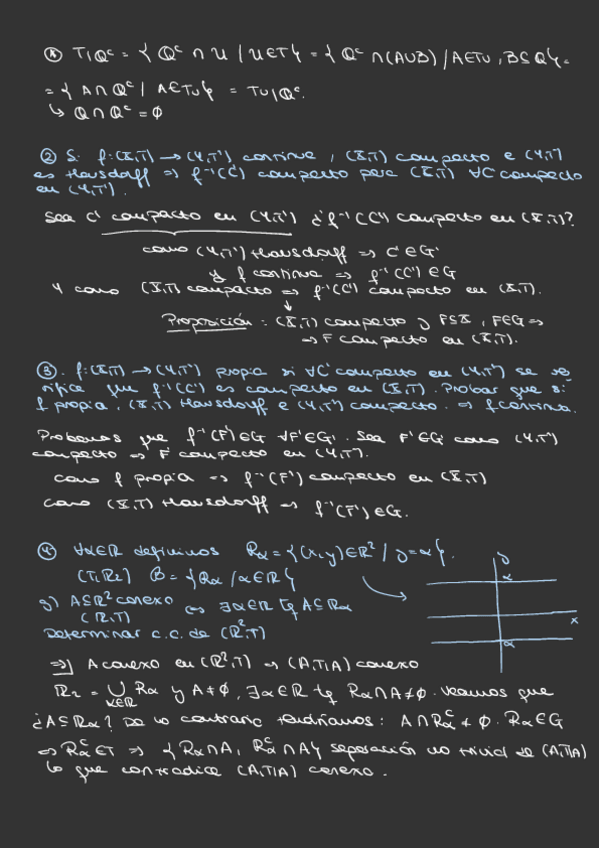 ④ T|ℚᶜ = { ℚᶜ ∩ U / U ∈ T } = { ℚᶜ ∩ (A∪B) / A∈Tu, B⊆ℚ } =
= { A∩ℚᶜ / A∈Tu } = Tu|ℚᶜ.
↳ ℚ∩ℚᶜ = ∅
② Si f:(X,T) → (Y,T') continua, (X,T) compacto e (Y,T')
es Hausdorff ⇒ f⁻¹(C') compacto para (X,T) ∀C' compacto
en (Y,T').
Sea C' compacto en (Y,T') ¿f⁻¹(C') compacto en (X,T)?
como (Y,T') Hausdorff ⇒ C'∈G'
y f continua ⇒ f⁻¹(C')∈G
Y como (X,T) compacto ⇒ f⁻¹(C') compacto en (X,T).
↓
Proposición: (X,T) compacto y F⊆X, F∈G ⇒
⇒ F compacto en (X,T).
③. f:(X,T) → (Y,T') propia si ∀C' compacto en (Y,T') se ve-
rifica que f⁻¹(C') es compacto en (X,T). Probar que si
f propia, (X,T) Hausdorff e (Y,T') compacto. ⇒ f continua.
Probamos que f⁻¹(F')∈G ∀F'∈G'. Sea F'∈G' como (Y,T')
compacto ⇒ F' compacto en (Y,T').
como f propia ⇒ f⁻¹(F') compacto en (X,T)
como (X,T) Hausdorff ⇒ f⁻¹(F')∈G.
④ ∀α∈ℝ definimos Rα = {(x,y)∈ℝ² / y=α}.
(T,ℝ²) B = {Rα / α∈ℝ}
y
α
x
α
g) A⊆ℝ² conexo ⇔ ∃α∈ℝ tq A⊆Rα
(ℝ²,T)
Determinar c.c. de (ℝ²,T)
⇒] A conexo en (ℝ²,T) ⇒ (A,T|A) conexo
ℝ² = ∪ Rα y A≠∅, ∃α∈ℝ tq Rα∩A≠∅. veamos que
α∈ℝ
¿A⊆Rα? De lo contrario tendríamos: A∩Rαᶜ≠∅. Rα∈G
⇒ Rαᶜ∈T ⇒ {Rα∩A, Rαᶜ∩A} separación no trivial de (A,T|A)
lo que contradice (A,T|A) conexo.